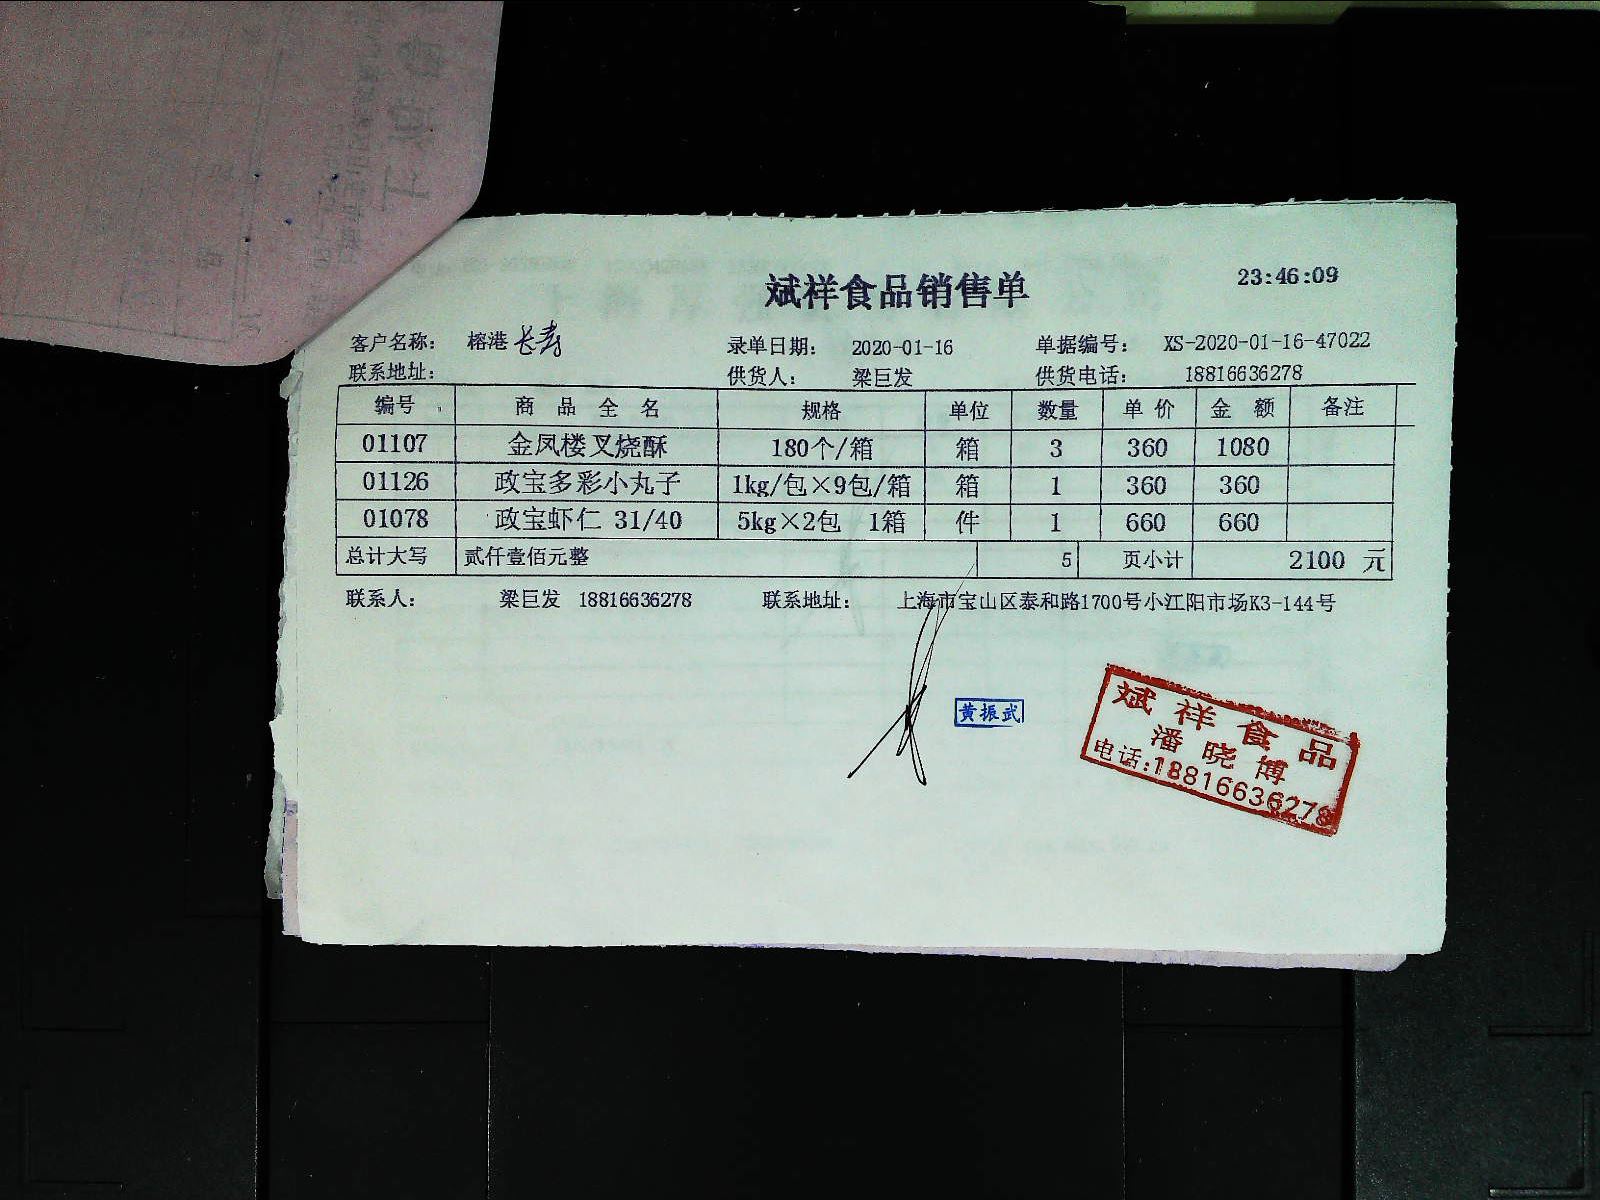 斌祥食品销售单 23:46:09
客户名称： 榕港 长寿 录单日期： 2020-01-16 单据编号： XS-2020-01-16-47022
联系地址： 供货人： 梁巨发 供货电话： 18816636278
编号 商 品 全 名 规格 单位 数量 单 价 金 额 备注
01107 金凤楼叉烧酥 180个/箱 箱 3 360 1080
01126 政宝多彩小丸子 1kg/包×9包/箱 箱 1 360 360
01078 政宝虾仁 31/40 5kg×2包 1箱 件 1 660 660
总计大写 贰仟壹佰元整 5 页小计 2100 元
联系人： 梁巨发 18816636278 联系地址： 上海市宝山区泰和路1700号小江阳市场K3-144号
黄振武
斌祥食品
潘晓博
电话:18816636278